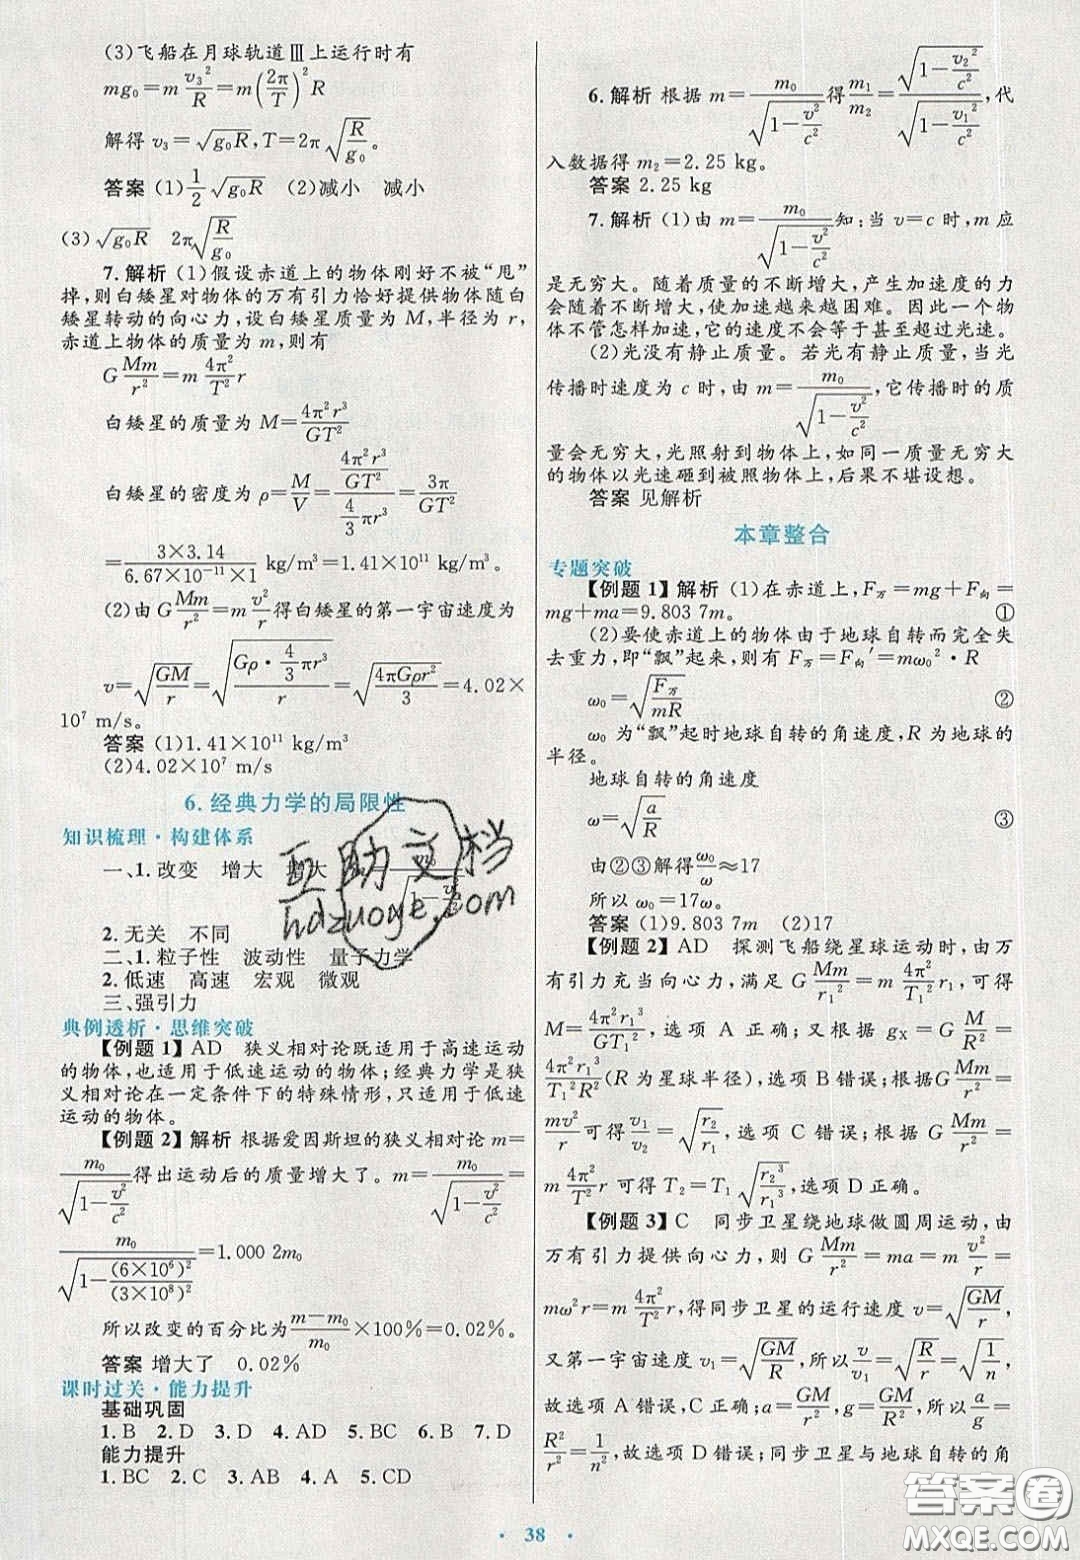 (3)飞船在月球轨道Ⅲ上运行时有
mg₀=m v₃²/R=m(2π/T)²R
解得 v₃=√(g₀R),T=2π√(R/g₀)。
答案 (1)1/2 √(g₀R) (2)减小 减小
(3)√(g₀R) 2π√(R/g₀)
7.解析 (1)假设赤道上的物体刚好不被“甩”
掉,则白矮星对物体的万有引力恰好提供物体随白
矮星转动的向心力,设白矮星质量为 M,半径为 r,
赤道上物体的质量为 m,则有
G Mm/r²=m 4π²/T² r
白矮星的质量为 M=4π²r³/GT²
白矮星的密度为 ρ=M/V=(4π²r³/GT²)/(4/3 πr³)=3π/GT²
=3×3.14/(6.67×10⁻¹¹×1) kg/m³=1.41×10¹¹ kg/m³
(2)由 G Mm/r²=m v²/r 得白矮星的第一宇宙速度为
v=√(GM/r)=√(Gρ·4/3 πr³/r)=√(4πGρr²/3)=4.02×
10⁷ m/s。
答案 (1)1.41×10¹¹ kg/m³
(2)4.02×10⁷ m/s
6.经典力学的局限性
知识梳理·构建体系
一、1.改变 增大 增大 m₀/√(1-v²/c²)
2.无关 不同
二、1.粒子性 波动性 量子力学
2.低速 高速 宏观 微观
三、强引力
典例透析·思维突破
【例题 1】AD 狭义相对论既适用于高速运动
的物体,也适用于低速运动的物体;经典力学是狭
义相对论在一定条件下的特殊情形,只适用于低速
运动的物体。
【例题 2】解析 根据爱因斯坦的狭义相对论 m=
m₀/√(1-v²/c²) 得出运动后的质量增大了。m=m₀/√(1-v²/c²)=
m₀/√(1-(6×10⁶)²/(3×10⁸)²)=1.000 2m₀
所以改变的百分比为 (m-m₀)/m₀×100%=0.02%。
答案 增大了 0.02%
课时过关·能力提升
基础巩固
1.B 2.D 3.D 4.AD 5.BC 6.B 7.D
能力提升
1.BC 2.C 3.AB 4.A 5.CD
6.解析 根据 m=m₀/√(1-v²/c²) 得 m₁/m₂=√(1-v₂²/c²)/√(1-v₁²/c²),代
入数据得 m₂=2.25 kg。
答案 2.25 kg
7.解析 (1)由 m=m₀/√(1-v²/c²) 知;当 v=c 时,m 应
是无穷大。随着质量的不断增大,产生加速度的力
会随着不断增大,使加速越来越困难。因此一个物
体不管怎样加速,它的速度不会等于甚至超过光速。
(2)光没有静止质量。若光有静止质量,当光
传播时速度为 c 时,由 m=m₀/√(1-v²/c²),它传播时的质
量会无穷大,光照射到物体上,如同一质量无穷大
的物体以光速砸到被照物体上,后果不堪设想。
答案 见解析
本章整合
专题突破
【例题 1】解析 (1)在赤道上,F万=mg+F向=
mg+ma=9.803 7m。 ①
(2)要使赤道上的物体由于地球自转而完全失
去重力,即“飘”起来,则有 F万=F向′=mω₀²·R
ω₀=√(F万/mR) ②
ω₀ 为“飘”起时地球自转的角速度,R 为地球的
半径。
地球自转的角速度
ω=√(a/R) ③
由②③解得 ω₀/ω≈17
所以 ω₀=17ω。
答案 (1)9.803 7m (2)17
【例题 2】AD 探测飞船绕星球运动时,由万
有引力充当向心力,满足 G Mm/r₁²=m 4π²/T₁² r₁,可得
M=4π²r₁³/GT₁²,选项 A 正确;又根据 gX=G M/R²=
4π²r₁³/T₁²R²(R 为星球半径),选项 B 错误;根据 G Mm/r²=
mv²/r 可得 v₁/v₂=√(r₂/r₁),选项 C 错误;根据 G Mm/r²=
m 4π²/T² r 可得 T₂=T₁√(r₂³/r₁³),选项 D 正确。
【例题 3】C 同步卫星绕地球做圆周运动,由
万有引力提供向心力,则 G Mm/r²=ma=m v²/r=
mω²r=m 4π²/T² r,得同步卫星的运行速度 v=√(GM/r),
又第一宇宙速度 v₁=√(GM/R),所以 v/v₁=√(R/r)=√(1/n),
故选项 A 错误,选项 C 正确;a=GM/r²,g=GM/R²,所以 a/g=
R²/r²=1/n²,故选项 D 错误;同步卫星与地球自转的角
互助文档
hdzuoye.com
答案圈
MXQE.COM
38